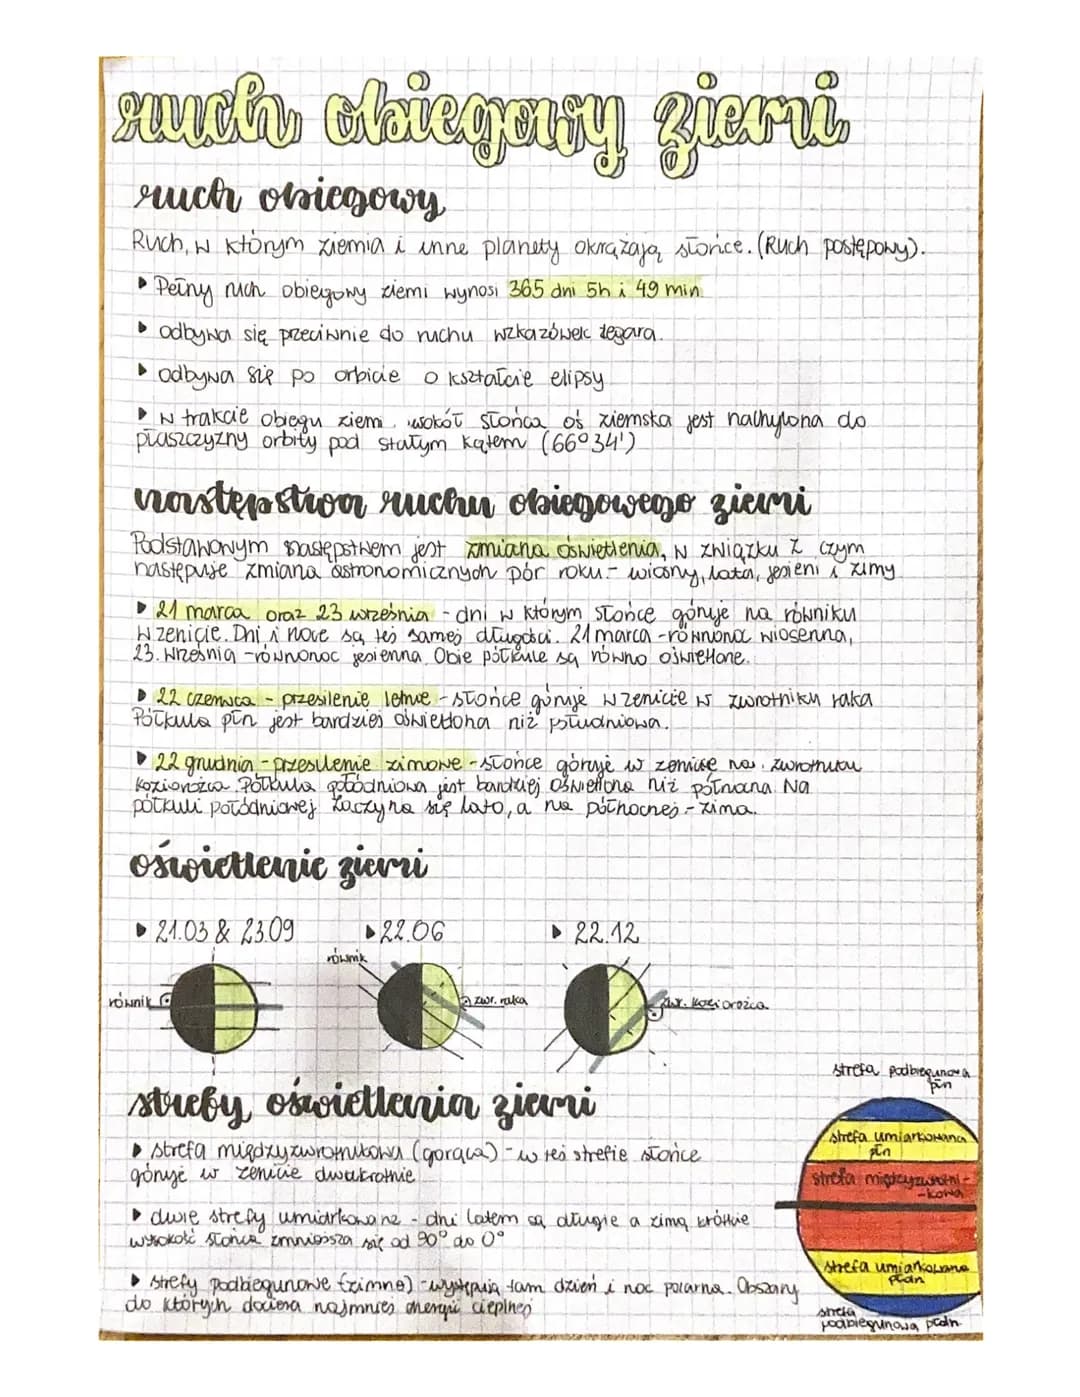 ruch obiegowy ziemi
ruch obiegowy
Ruch, w którym ziemia i inne planety okrążają słońce. (Ruch postępowy).
▸ Pełny ruch obiegowy ziemi wynosi 365 dni 5h i 49 min.
▸ odbywa się przeciwnie do ruchu wzkazówek zegara.
▸ odbywa się po orbicie o kształcie elipsy
▸ w trakcie obiegu ziemi wokół słońca oś ziemska jest nachylona do
płaszczyzny orbity pod stałym kątem (66°34')
następstwa ruchu obiegowego ziemi
Podstawowym następstwem jest zmiana oświetlenia, w związku z czym
następuje zmiana astronomicznych pór roku - wiosny, lata, jesieni i zimy
▸ 21 marca oraz 23 września - dni w którym słońce góruje na równiku
w zenicie. Dni i noce są tej samej długości. 21 marca - równonoc wiosenna,
23. września - równonoc jesienna. Obie półkule są równo oświetlone.
▸ 22 czerwca - przesilenie letnie - słońce góruje w zenicie w zwrotniku raka
Półkula płn jest bardziej oświetlona niż południowa.
▸ 22 grudnia - przesilenie zimowe - słońce góruje w zenicie na zwrotniku
koziorożca. Półkula połódniowa jest bardziej oświetlona niż północna. Na
półkuli połódniowej zaczyna się lato, a na północnej - zima.
oświetlenie ziemi
▸ 21.03 & 23.09 ▸ 22.06 ▸ 22.12
równik
równik zwr. raka zwr. koziorożca
strefa podbiegunowa
płn
strefy oświetlenia ziemi
strefa umiarkowana
płn
▸ strefa międzyzwrotnikowa (gorąca) - w tej strefie słońce
góruje w zenicie dwukrotnie
strefa międzyzwrotni-
-kowa
▸ dwie strefy umiarkowane - dni latem są długie a zimą krótkie
wysokość słońca zmniejsza się od 90° do 0°
strefa umiarkowana
płdn
▸ strefy podbiegunowe (zimne) - występują tam dzień i noc polarna. Obszary
do których dociera najmniej energii cieplnej
strefa
podbiegunowa płdn